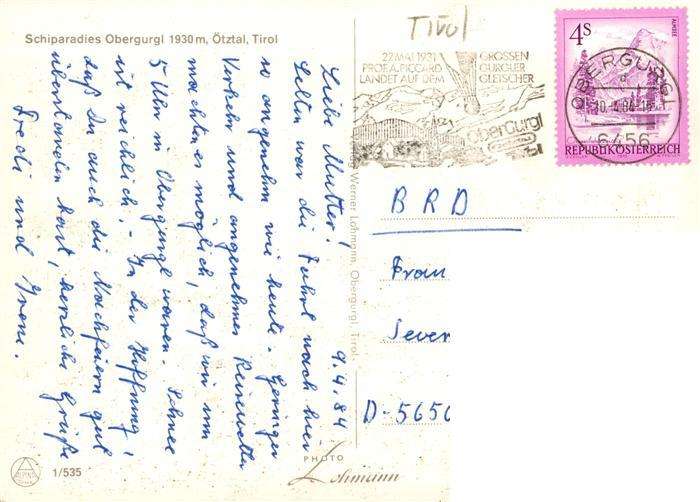 Schiparadies Obergurgl 1930 m, Ötztal, Tirol
Tirol
22. MAI 1931
PROF. A. PICCARD
LANDET AUF DEM
GROSSEN
GURGLER
GLETSCHER
obergurgl
4S
ALMSEE
REPUBLIK ÖSTERREICH
OBERGURGL
6456
9.4.84
Liebe Mutter!
Selten war die Fahrt nach hier
so angenehm wie heute. Geringer
Verkehr und angenehmes Reisewetter
machten es möglich, daß wir um
5 Uhr in Obergurgl waren. Schnee
ist reichlich! - In der Hoffnung,
daß Du auch die Nachfeiern gut
überstanden hast, herzliche Grüße
Fredi und Irene.
BRD
Frau
Sever
D-5650
Werner Lohmann, Obergurgl, Tirol
PHOTO
Lohmann
1/535